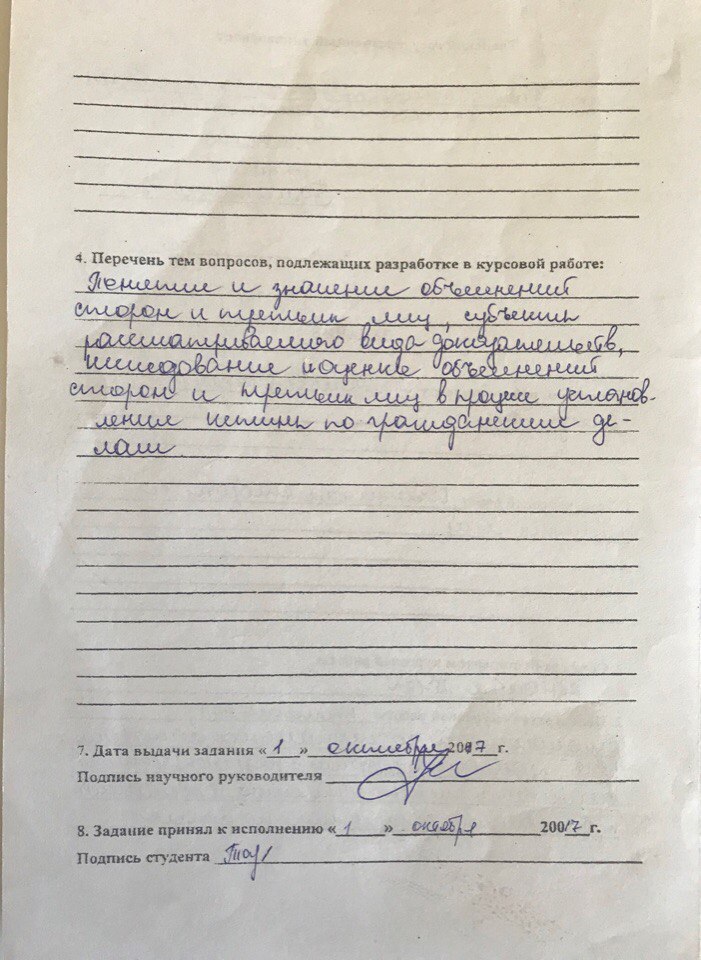 4. Перечень тем вопросов, подлежащих разработке в курсовой работе:
Понятие и значение объяснений
сторон и третьих лиц, субъекты
рассматриваемого вида доказательств,
исследование и оценка объяснений
сторон и третьих лиц в процессе установ-
ления истины по гражданским де-
лам
7. Дата выдачи задания «1» октября 2017 г.
Подпись научного руководителя
8. Задание принял к исполнению «1» октября 20017 г.
Подпись студента